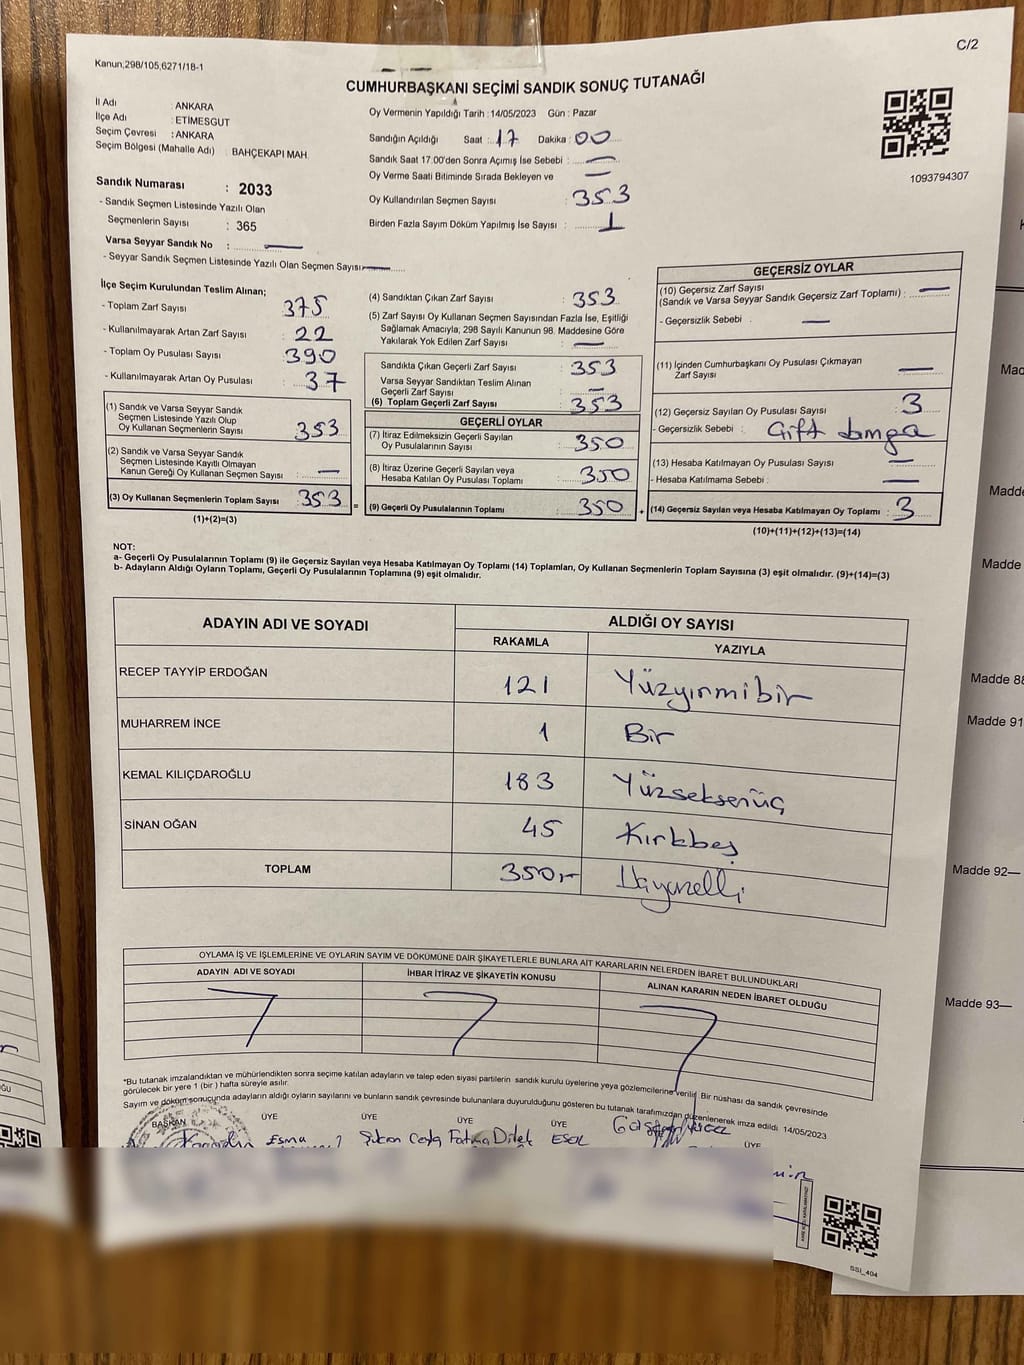 C/2
Kanun;298/105,6271/18-1
CUMHURBAŞKANI SEÇİMİ SANDIK SONUÇ TUTANAĞI
İl Adı : ANKARA
İlçe Adı : ETİMESGUT
Seçim Çevresi : ANKARA
Seçim Bölgesi (Mahalle Adı) : BAHÇEKAPI MAH.
Oy Vermenin Yapıldığı Tarih : 14/05/2023 Gün : Pazar
Sandığın Açıldığı Saat : 17 Dakika : 00
Sandık Saat 17.00'den Sonra Açımış İse Sebebi : —
Oy Verme Saati Bitiminde Sırada Bekleyen ve —
Oy Kullandırılan Seçmen Sayısı : 353
Birden Fazla Sayım Döküm Yapılmış İse Sayısı : 1
1093794307
Sandık Numarası : 2033
- Sandık Seçmen Listesinde Yazılı Olan
Seçmenlerin Sayısı : 365
Varsa Seyyar Sandık No : —
- Seyyar Sandık Seçmen Listesinde Yazılı Olan Seçmen Sayısı: —
İlçe Seçim Kurulundan Teslim Alınan;
- Toplam Zarf Sayısı : 375
- Kullanılmayarak Artan Zarf Sayısı : 22
- Toplam Oy Pusulası Sayısı : 390
- Kullanılmayarak Artan Oy Pusulası : 37
(1) Sandık ve Varsa Seyyar Sandık
Seçmen Listesinde Yazılı Olup
Oy Kullanan Seçmenlerin Sayısı : 353
(2) Sandık ve Varsa Seyyar Sandık
Seçmen Listesinde Kayıtlı Olmayan
Kanun Gereği Oy Kullanan Seçmen Sayısı : —
(3) Oy Kullanan Seçmenlerin Toplam Sayısı : 353 =
(1)+(2)=(3)
(4) Sandıktan Çıkan Zarf Sayısı : 353
(5) Zarf Sayısı Oy Kullanan Seçmen Sayısından Fazla İse, Eşitliği
Sağlamak Amacıyla; 298 Sayılı Kanunun 98. Maddesine Göre
Yakılarak Yok Edilen Zarf Sayısı : —
Sandıkta Çıkan Geçerli Zarf Sayısı : 353
Varsa Seyyar Sandıktan Teslim Alınan
Geçerli Zarf Sayısı : —
(6) Toplam Geçerli Zarf Sayısı : 353
GEÇERLİ OYLAR
(7) İtiraz Edilmeksizin Geçerli Sayılan
Oy Pusulalarının Sayısı : 350
(8) İtiraz Üzerine Geçerli Sayılan veya
Hesaba Katılan Oy Pusulası Toplamı : 350
(9) Geçerli Oy Pusulalarının Toplamı : 350 +
GEÇERSİZ OYLAR
(10) Geçersiz Zarf Sayısı
(Sandık ve Varsa Seyyar Sandık Geçersiz Zarf Toplamı) : —
- Geçersizlik Sebebi : —
(11) İçinden Cumhurbaşkanı Oy Pusulası Çıkmayan
Zarf Sayısı —
(12) Geçersiz Sayılan Oy Pusulası Sayısı : 3
- Geçersizlik Sebebi : Çift damga
(13) Hesaba Katılmayan Oy Pusulası Sayısı : —
- Hesaba Katılmama Sebebi : —
(14) Geçersiz Sayılan veya Hesaba Katılmayan Oy Toplamı : 3
(10)+(11)+(12)+(13)=(14)
NOT:
a- Geçerli Oy Pusulalarının Toplamı (9) ile Geçersiz Sayılan veya Hesaba Katılmayan Oy Toplamı (14) Toplamları, Oy Kullanan Seçmenlerin Toplam Sayısına (3) eşit olmalıdır. (9)+(14)=(3)
b- Adayların Aldığı Oyların Toplamı, Geçerli Oy Pusulalarının Toplamına (9) eşit olmalıdır.
ADAYIN ADI VE SOYADI ALDIĞI OY SAYISI
RAKAMLA YAZIYLA
RECEP TAYYİP ERDOĞAN 121 Yüzyirmibir
MUHARREM İNCE 1 Bir
KEMAL KILIÇDAROĞLU 183 Yüzseksenüç
SİNAN OĞAN 45 Kırkbeş
TOPLAM 350,-
OYLAMA İŞ VE İŞLEMLERİNE VE OYLARIN SAYIM VE DÖKÜMÜNE DAİR ŞİKAYETLERLE BUNLARA AİT KARARLARIN NELERDEN İBARET BULUNDUKLARI
ADAYIN ADI VE SOYADI İHBAR İTİRAZ VE ŞİKAYETİN KONUSU ALINAN KARARIN NEDEN İBARET OLDUĞU
*Bu tutanak imzalandıktan ve mühürlendikten sonra seçime katılan adayların ve talep eden siyasi partilerin sandık kurulu üyelerine veya gözlemcilerine verilir. Bir nüshası da sandık çevresinde
görülecek bir yere 1 (bir) hafta süreyle asılır.
Sayım ve döküm sonucunda adayların aldığı oyların sayılarını ve bunların sandık çevresinde bulunanlara duyurulduğunu gösteren bu tutanak tarafımızdan düzenlenerek imza edildi. 14/05/2023
BAŞKAN ÜYE ÜYE ÜYE ÜYE
Esma Fatma Dilek
ÜYE
SSİ_404
Madde 88
Madde 91
Madde 92—
Madde 93—